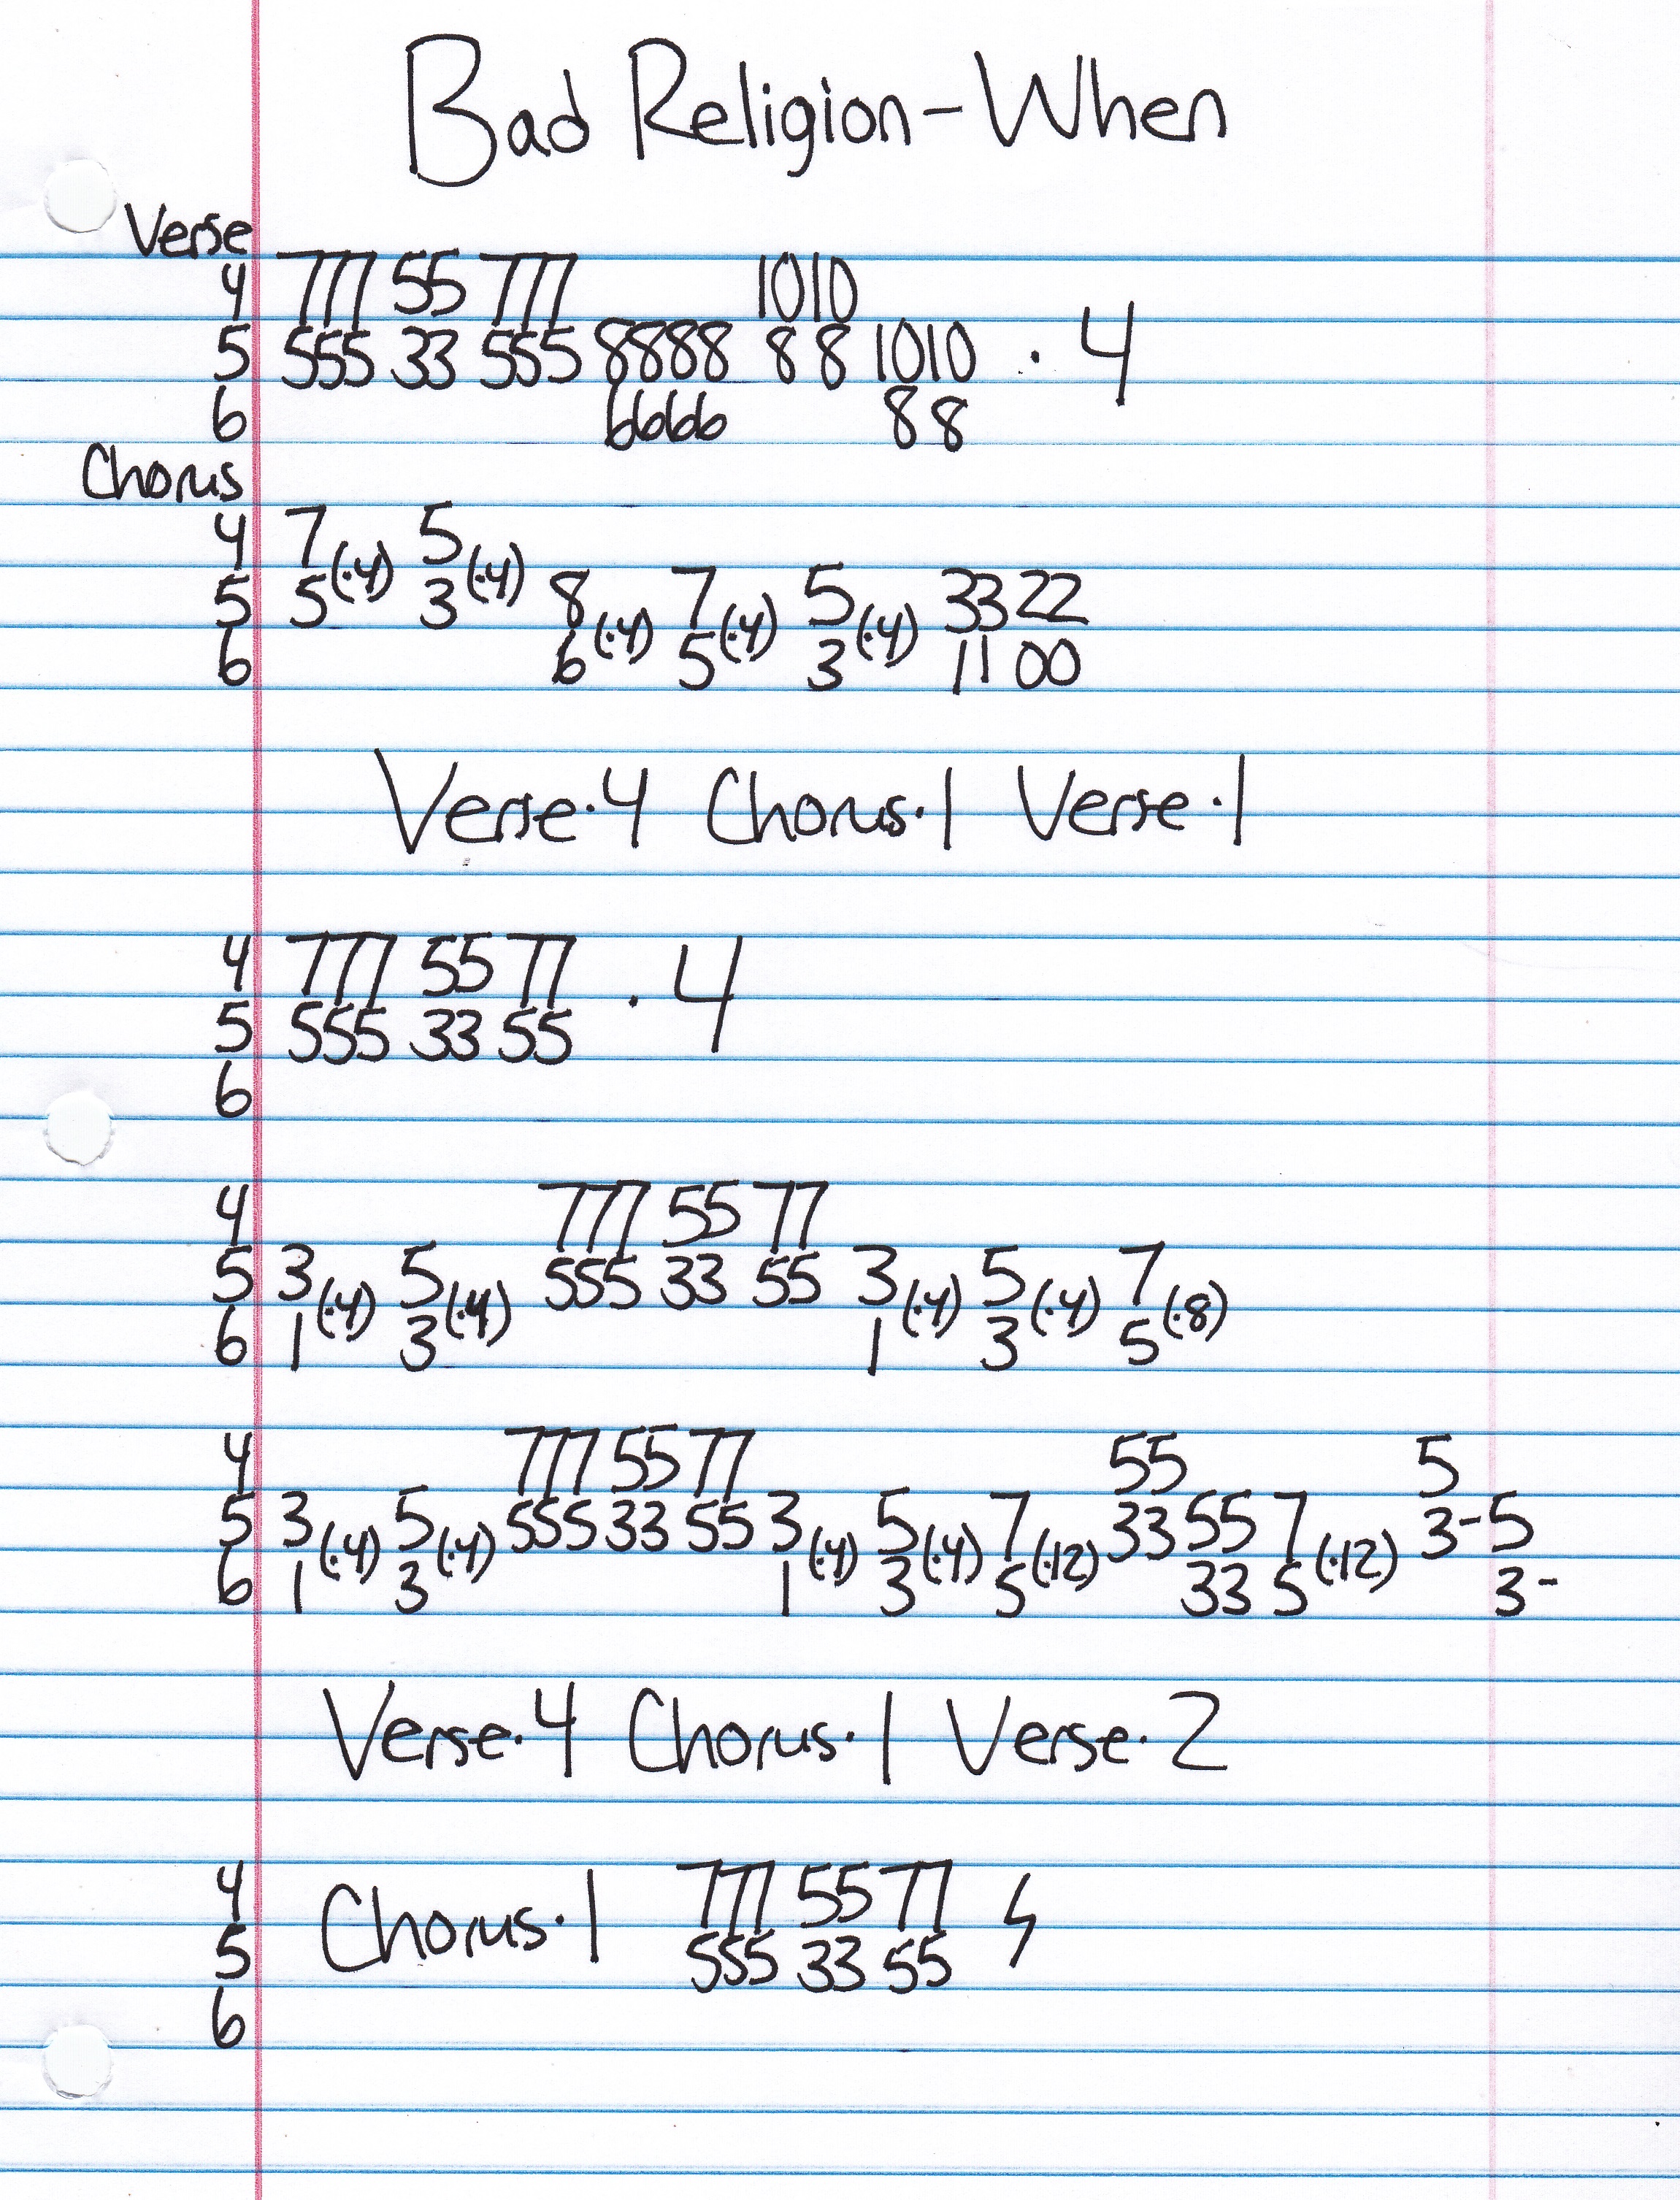 Bad Religion-When
Verse
4 777 55 777 1010
5 555 33 555 8888 8 8 1010 · 4
6 6666 88
Chorus
4 7 5
5 5(·4) 3(·4) 8 7 5 33 22
6 6(·4) 5(·4) 3(·4) 11 00
Verse·4 Chorus·1 Verse·1
4 777 55 77
5 555 33 55 · 4
6
4 777 55 77
5 3 5 555 33 55 3 5 7
6 1(·4) 3(·4) 1(·4) 3(·4) 5(·8)
4 777 55 77 55 5
5 3 5 555 33 55 3 5 7 33 55 7 3-5
6 1(·4) 3(·4) 1(·4) 3(·4) 5(·12) 33 5(·12) 3-
Verse·4 Chorus·1 Verse·2
4 Chorus·1 777 55 77
5 555 33 55
6